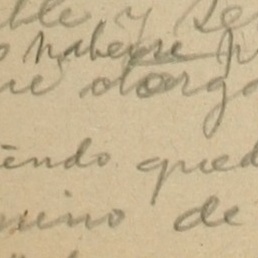 ble y se
haberse p
ue otorga
iendo qued
mino de